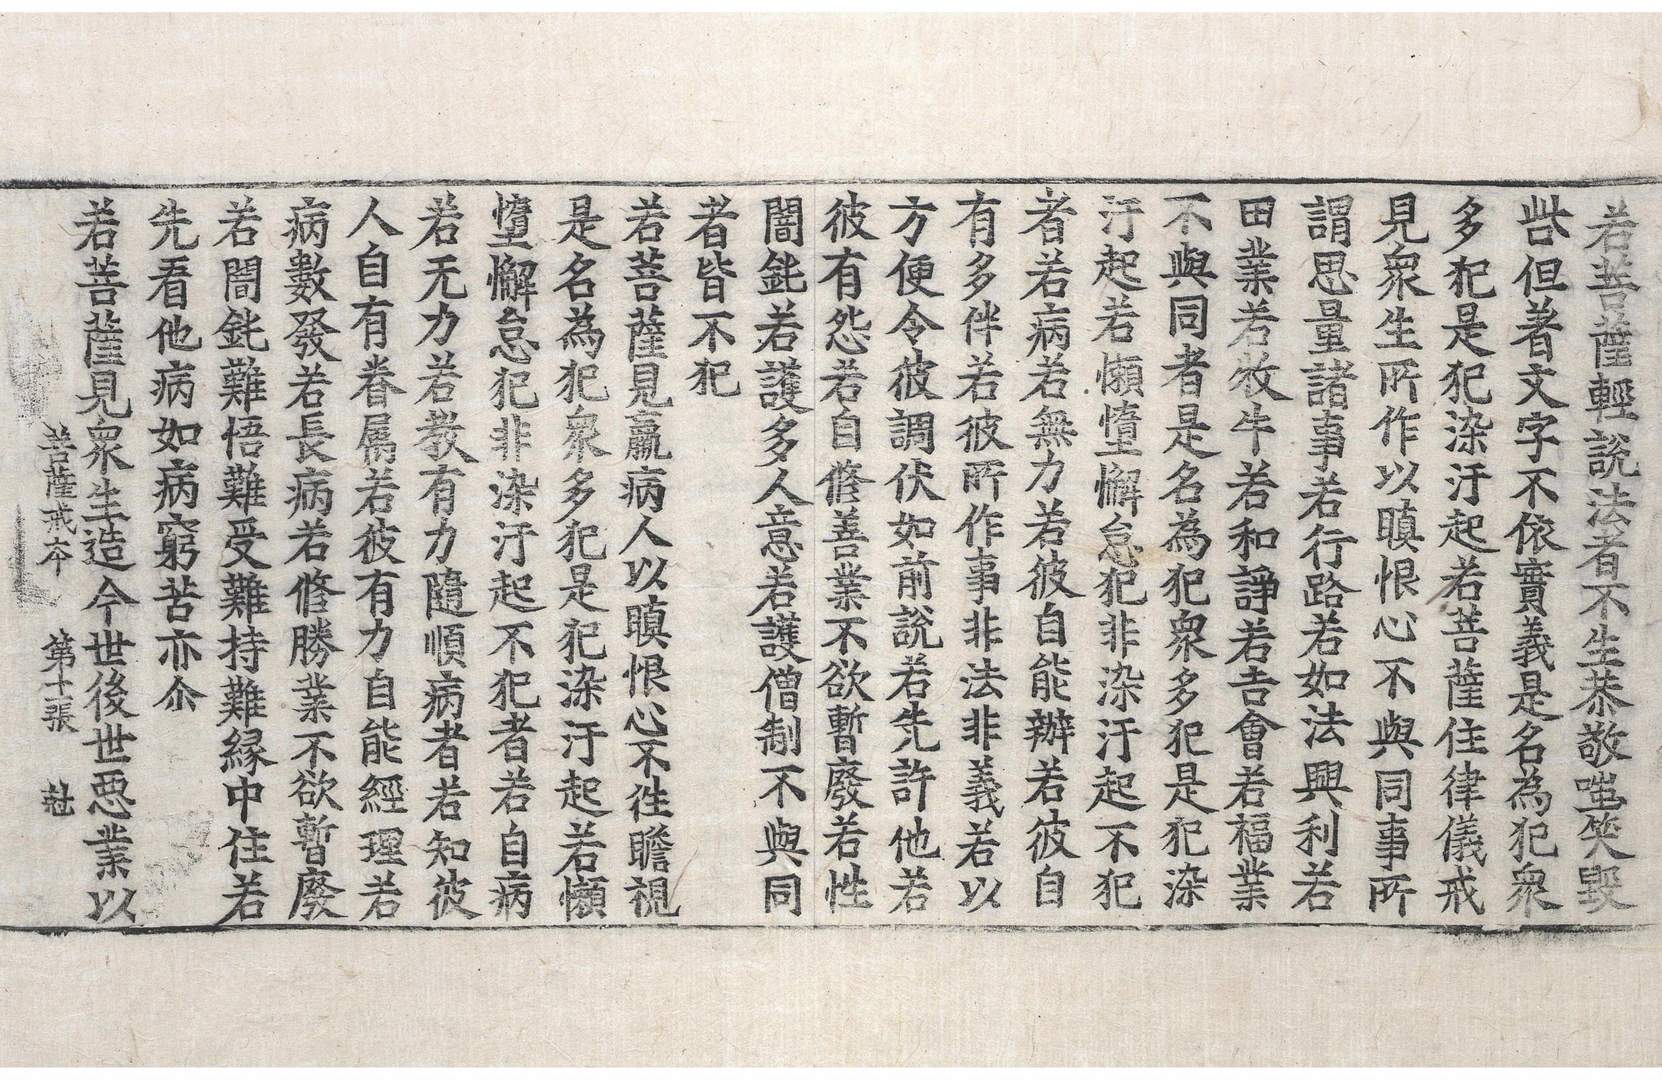 若菩薩輕說法者不生恭敬嗤笑毀
呰但著文字不依實義是名為犯衆
多犯是犯染汙起若菩薩住律儀戒
見衆生所作以瞋恨心不與同事所
謂思量諸事若行路若如法興利若
田業若牧牛若和諍若吉會若福業
不與同者是名為犯衆多犯是犯染
汙起若懶墮懈怠犯非染汙起不犯
者若病若無力若彼自能辦若彼自
有多伴若彼所作事非法非義若以
方便令彼調伏如前說若先許他若
彼有怨若自修善業不欲暫廢若性
闇鈍若護多人意若護僧制不與同
者皆不犯
若菩薩見羸病人以瞋恨心不往瞻視
是名為犯衆多犯是犯染汙起若懶
墮懈怠犯非染汙起不犯者若自病
若无力若教有力隨順病者若知彼
人自有眷属若彼有力自能經理若
病數發若長病若修勝業不欲暫廢
若闇鈍難悟難受難持難緣中住若
先看他病如病窮苦亦尒
若菩薩見衆生造今世後世惡業以
菩薩戒本 第十張